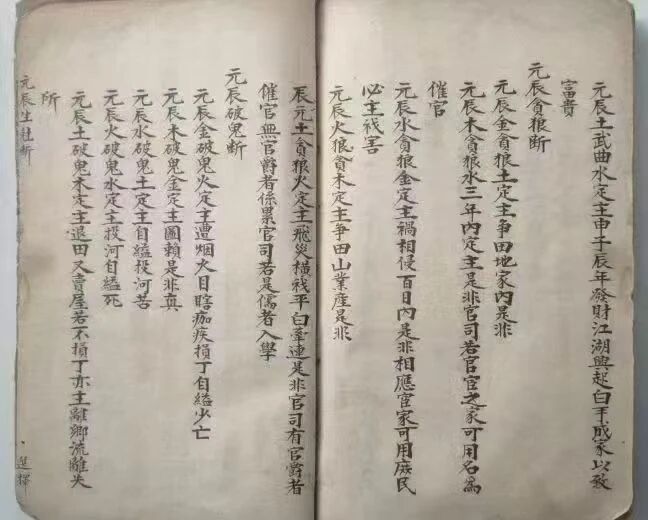 元辰土武曲水定主申子辰年發財江湖興起白手成家以致
富貴
元辰貪狼斷
元辰金貪狼土定主爭田地家內是非
元辰木貪狼水三年內定主是非官司若官宦之家可用名爲
催官
元辰水貪狼金定主禍相侵百日內是非相應宦家可用庶民
必主殺害
元辰火狼貪木定主爭田山業産是非
辰元土貪狼火定主飛災橫殺平白牽連是非官司有官爵者
催官無官爵者係累官司若是儒者入學
元辰破鬼斷
元辰金破鬼火定主遭烟火目瞎痴疾損丁自縊少亡
元辰木破鬼金定主圖賴是非真
元辰水破鬼土定主自縊投河苦
元辰火破鬼水定主投河自縊死
元辰土破鬼木定主退田又賣屋若不損丁亦主離鄉流離失
所
元辰生斷
選擇